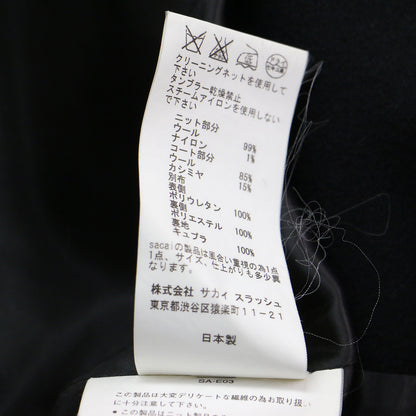 ドライ
クリーニングネットを使用して
下さい
タンブラー乾燥禁止
スチームアイロンを使用しない
で下さい
ニット部分
ウール 99%
ナイロン 1%
コート部分
ウール 85%
カシミヤ 15%
別布
表側
ポリウレタン 100%
裏側
ポリエステル 100%
裏地
キュプラ 100%
sacaiの製品は風合い重視の為1
点1点、サイズ、仕上がりも多少異
なります。
株式会社 サカイ スラッシュ
東京都渋谷区猿楽町11-21
日本製
SA-E03
この製品は大変デリケートな繊維の為お取り扱い
に十分注意して下さい。